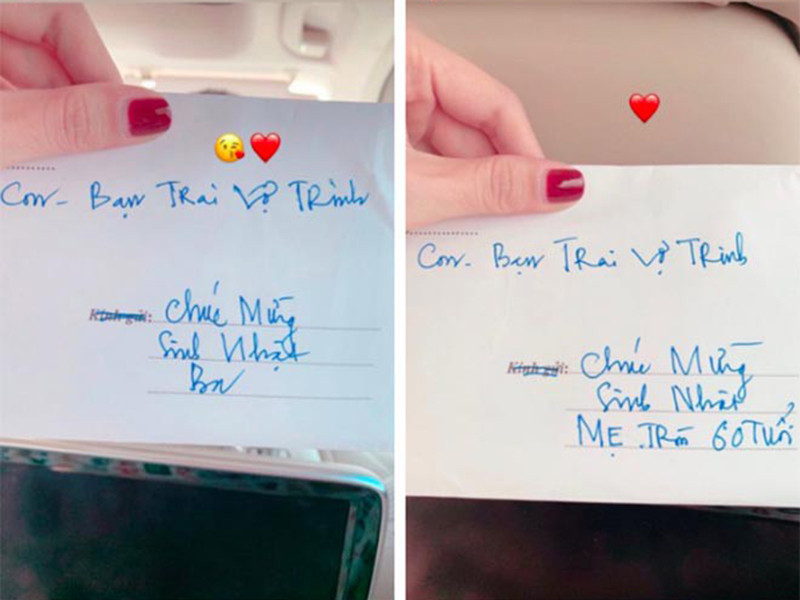 Con- Bạn Trai Vợ Trình
Kính gửi: Chúc Mừng
Sinh Nhật
Ba
Con- Bạn Trai Vợ Trinh
Kính gửi: Chúc Mừng
Sinh Nhật
MẸ Tròn 60 Tuổi